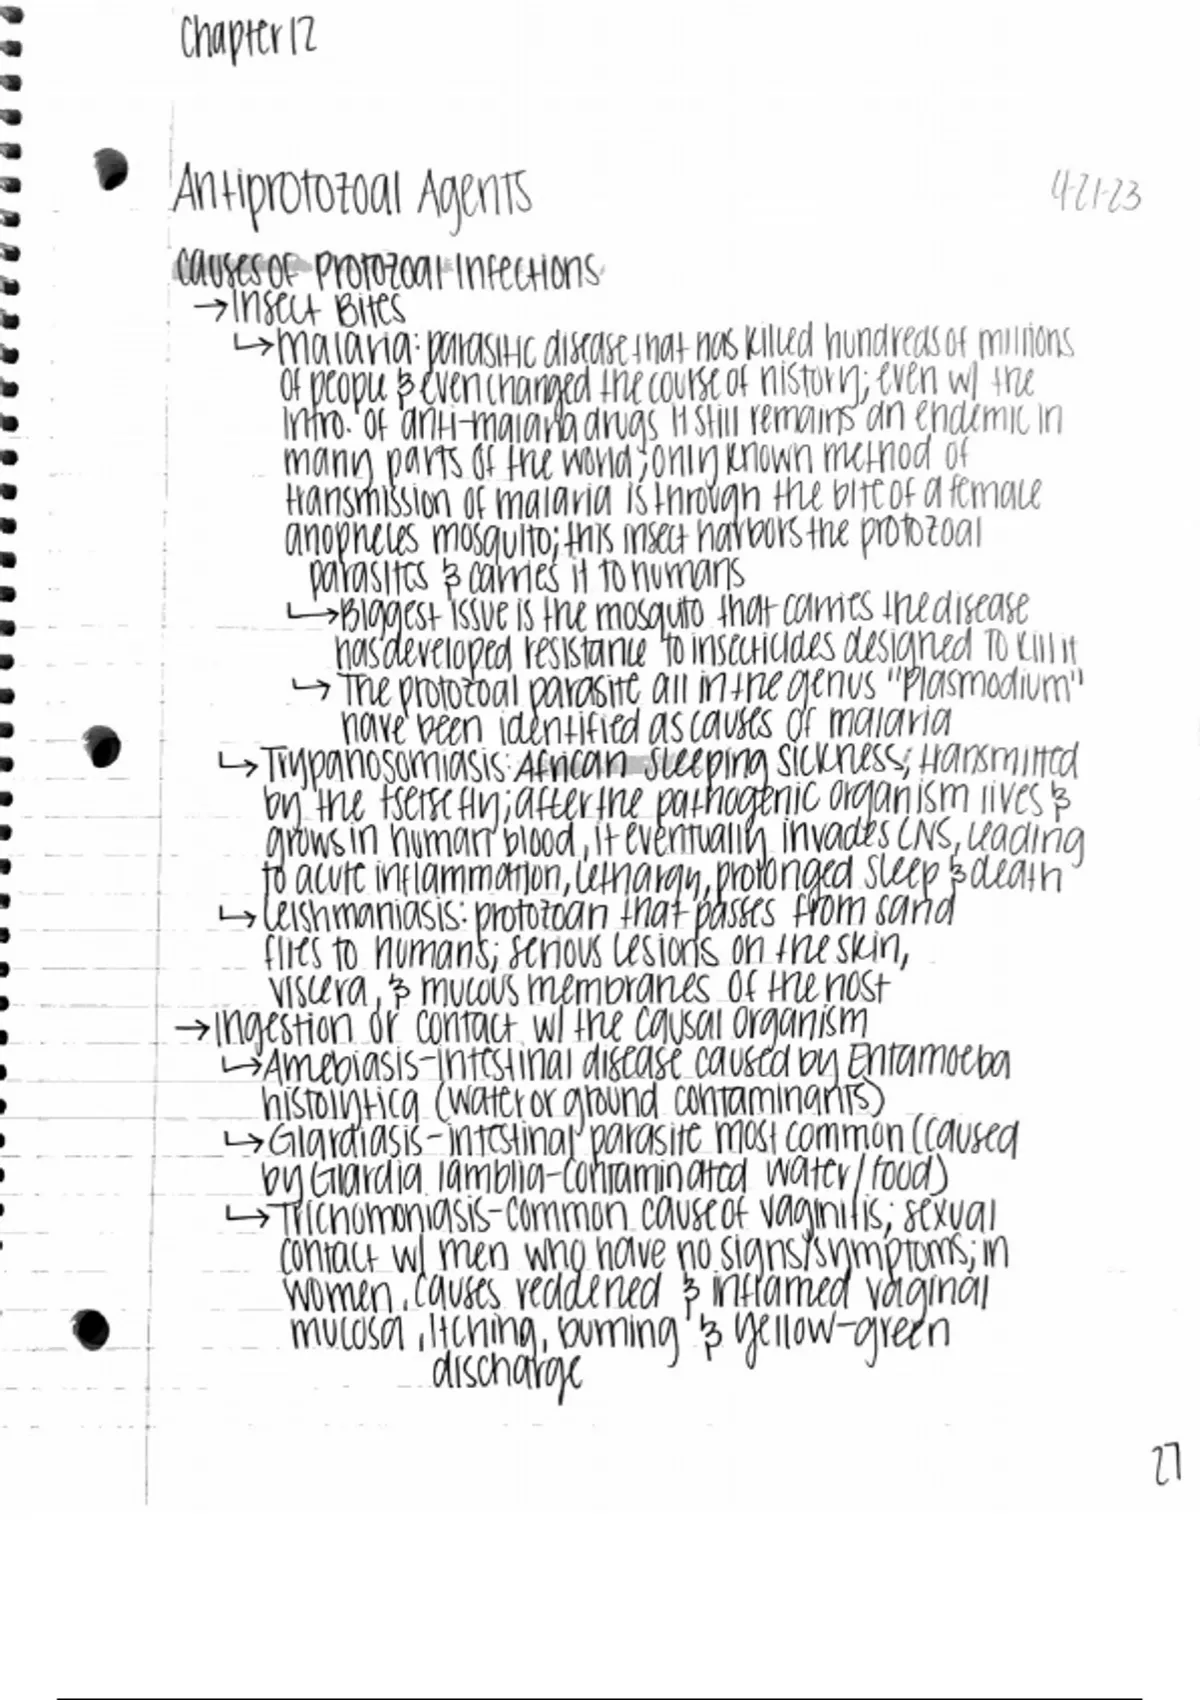 Chapter 12
Antiprotozoal Agents
4-21-23
Causes of Protozoal Infections
→ Insect Bites
↳ Malaria: parasitic disease that has killed hundreds of millions
of people & even changed the course of history; even w/ the
intro. of anti-malaria drugs it still remains an endemic in
many parts of the world; only known method of
transmission of malaria is through the bite of a female
anopheles mosquito; this insect harbors the protozoal
parasites & carries it to humans
↳ Biggest issue is the mosquito that carries the disease
has developed resistance to insecticides designed to kill it
↳ The protozoal parasite all in the genus "Plasmodium"
have been identified as causes of malaria
↳ Trypanosomiasis: African sleeping sickness; transmitted
by the tsetse fly; after the pathogenic organism lives &
grows in human blood, it eventually invades CNS, leading
to acute inflammation, lethargy, prolonged sleep & death
↳ Leishmaniasis: protozoan that passes from sand
flies to humans; serious lesions on the skin,
viscera, & mucous membranes of the host
→ Ingestion or contact w/ the causal organism
↳ Amebiasis - intestinal disease caused by Entamoeba
histolytica (water or ground contaminants)
↳ Giardiasis - intestinal parasite most common (caused
by Giardia lamblia - contaminated water/food)
↳ Trichomoniasis - common cause of vaginitis; sexual
contact w/ men who have no signs/symptoms; in
women, causes reddened & inflamed vaginal
mucosa, itching, burning & yellow-green
discharge
27